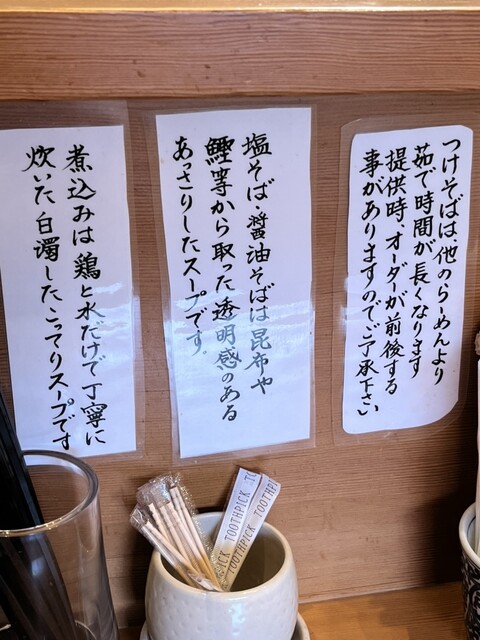 つけそばは、他のらーめんより
茹で時間が長くなります
提供時、オーダーが前後する
事がありますのでご了承下さい
塩そば・醤油そばは昆布や
鰹等から取った透明感のある
あっさりしたスープです。
煮込みは鶏と水だけで丁寧に
炊いた白濁したこってりスープです
TOOTHPICK
TOOTHPICK